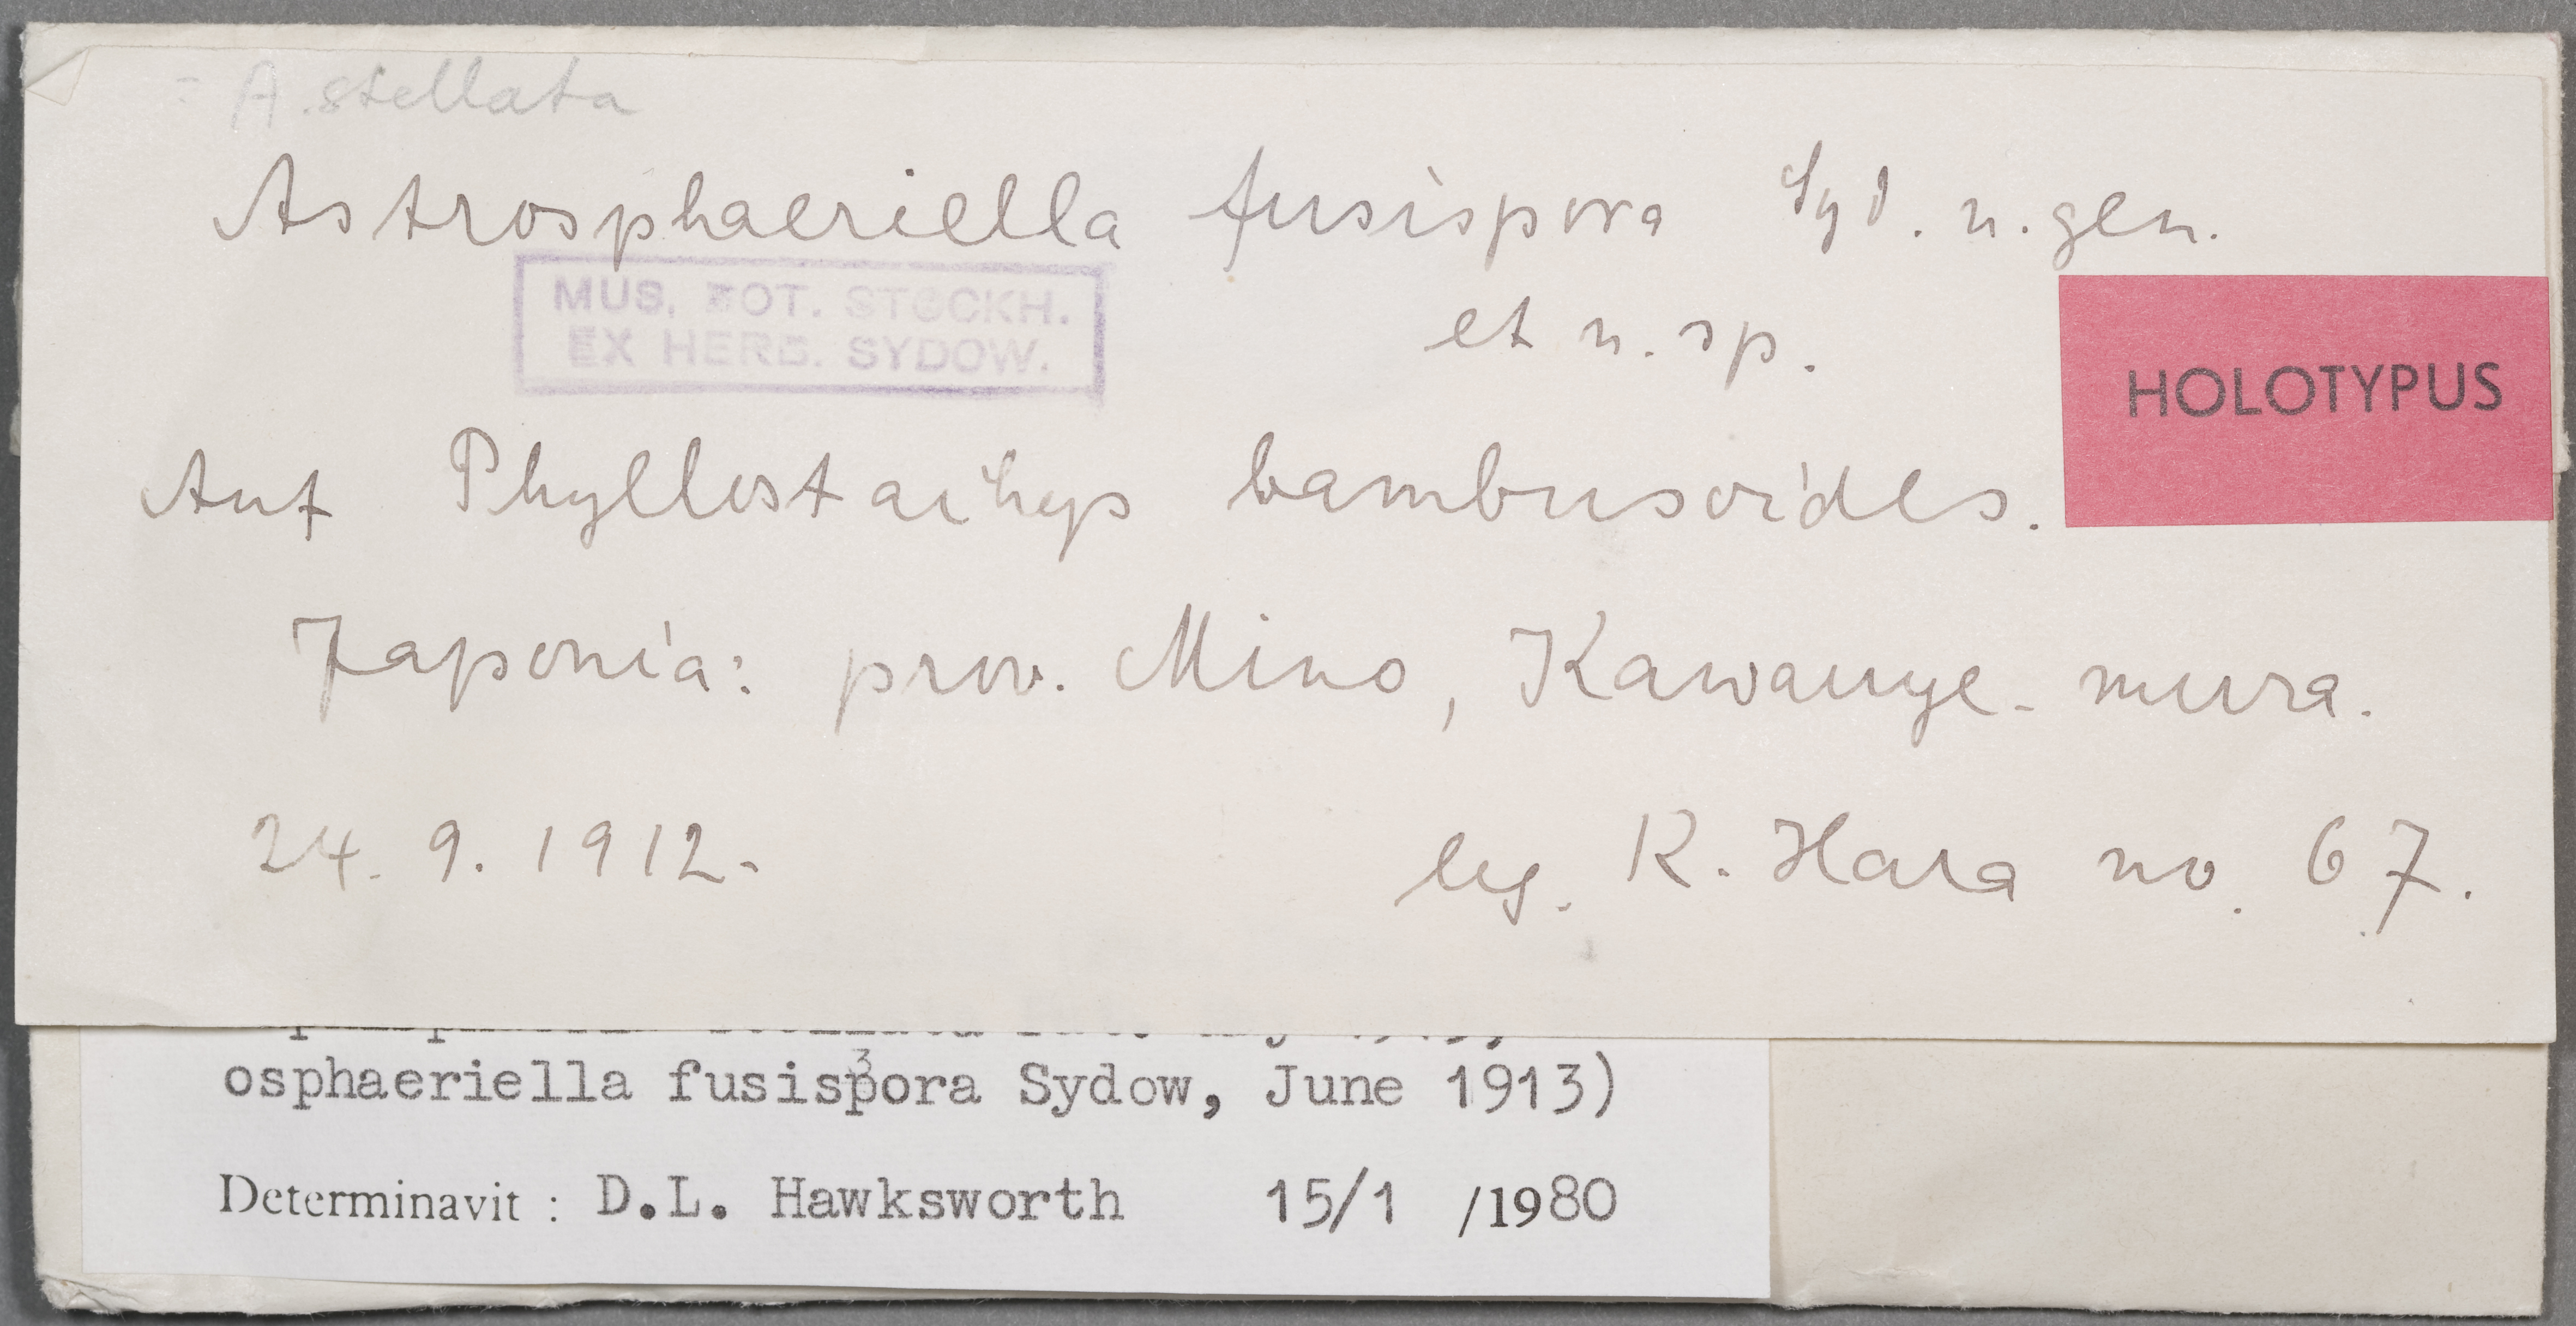 = A. stellata
Astrosphaeriella fusispora Syd. n. gen.
et n. sp.
MUS. BOT. STOCKH.
EX HERB. SYDOW.
HOLOTYPUS
Auf Phyllostachys bambusoides.
Japonia: prov. Mino, Kawauye-mura.
24. 9. 1912.
leg. K. Hara no. 67.
osphaeriella fusispora Sydow, June 1913)
Determinavit : D.L. Hawksworth 15/1 /1980